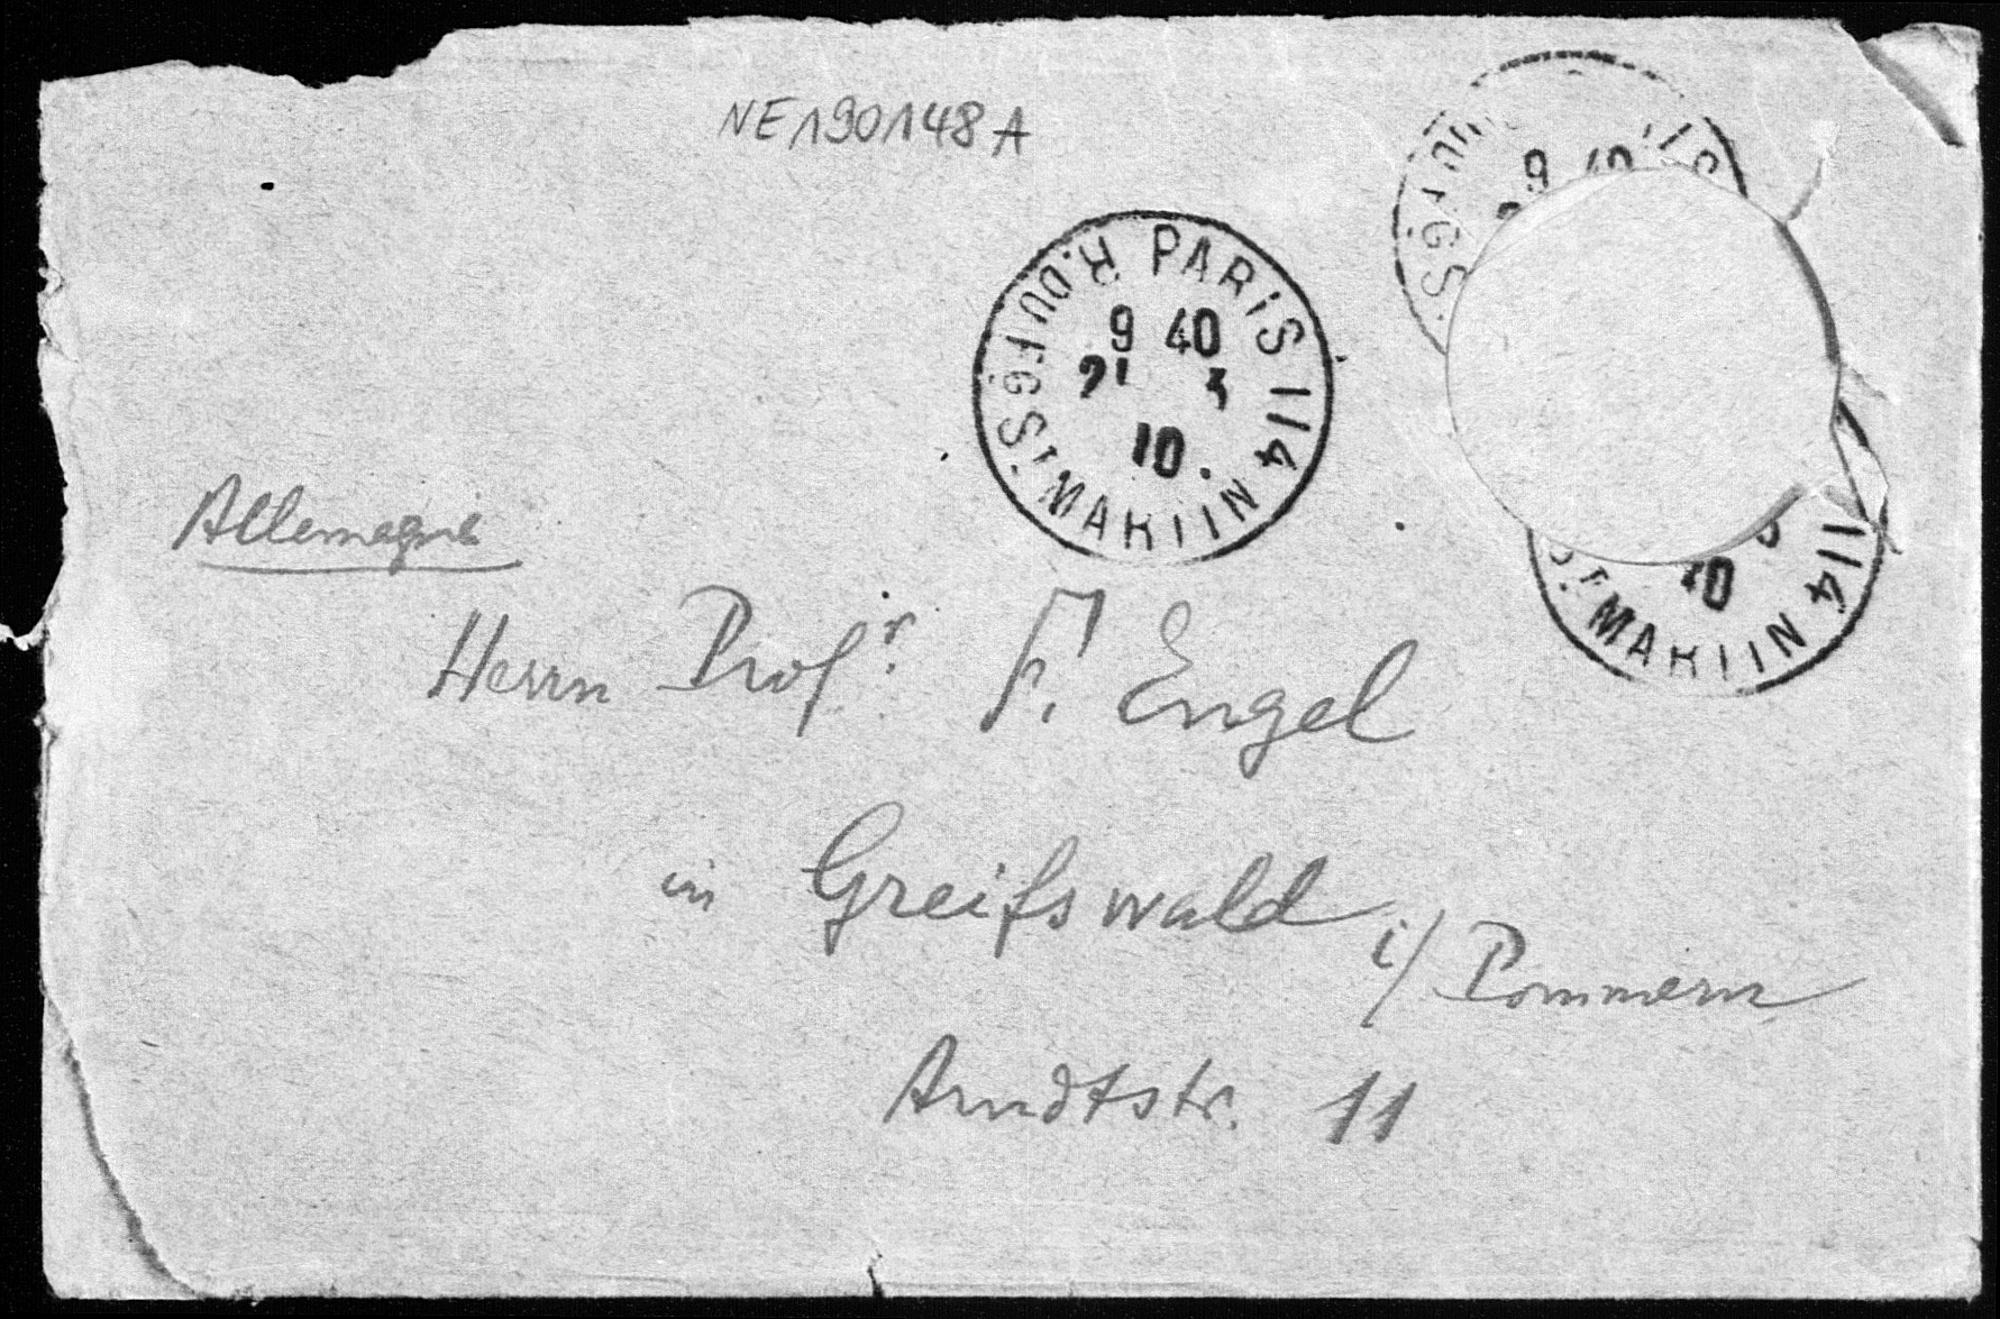 NE190148A
PARIS 114 R. DU FG St MARTIN
9 40
21 3
10
9 40
114
St MARTIN
10
Allemagne
Herrn Profr. F. Engel
in Greifswald
i/ Pommern
Arndtstr. 11